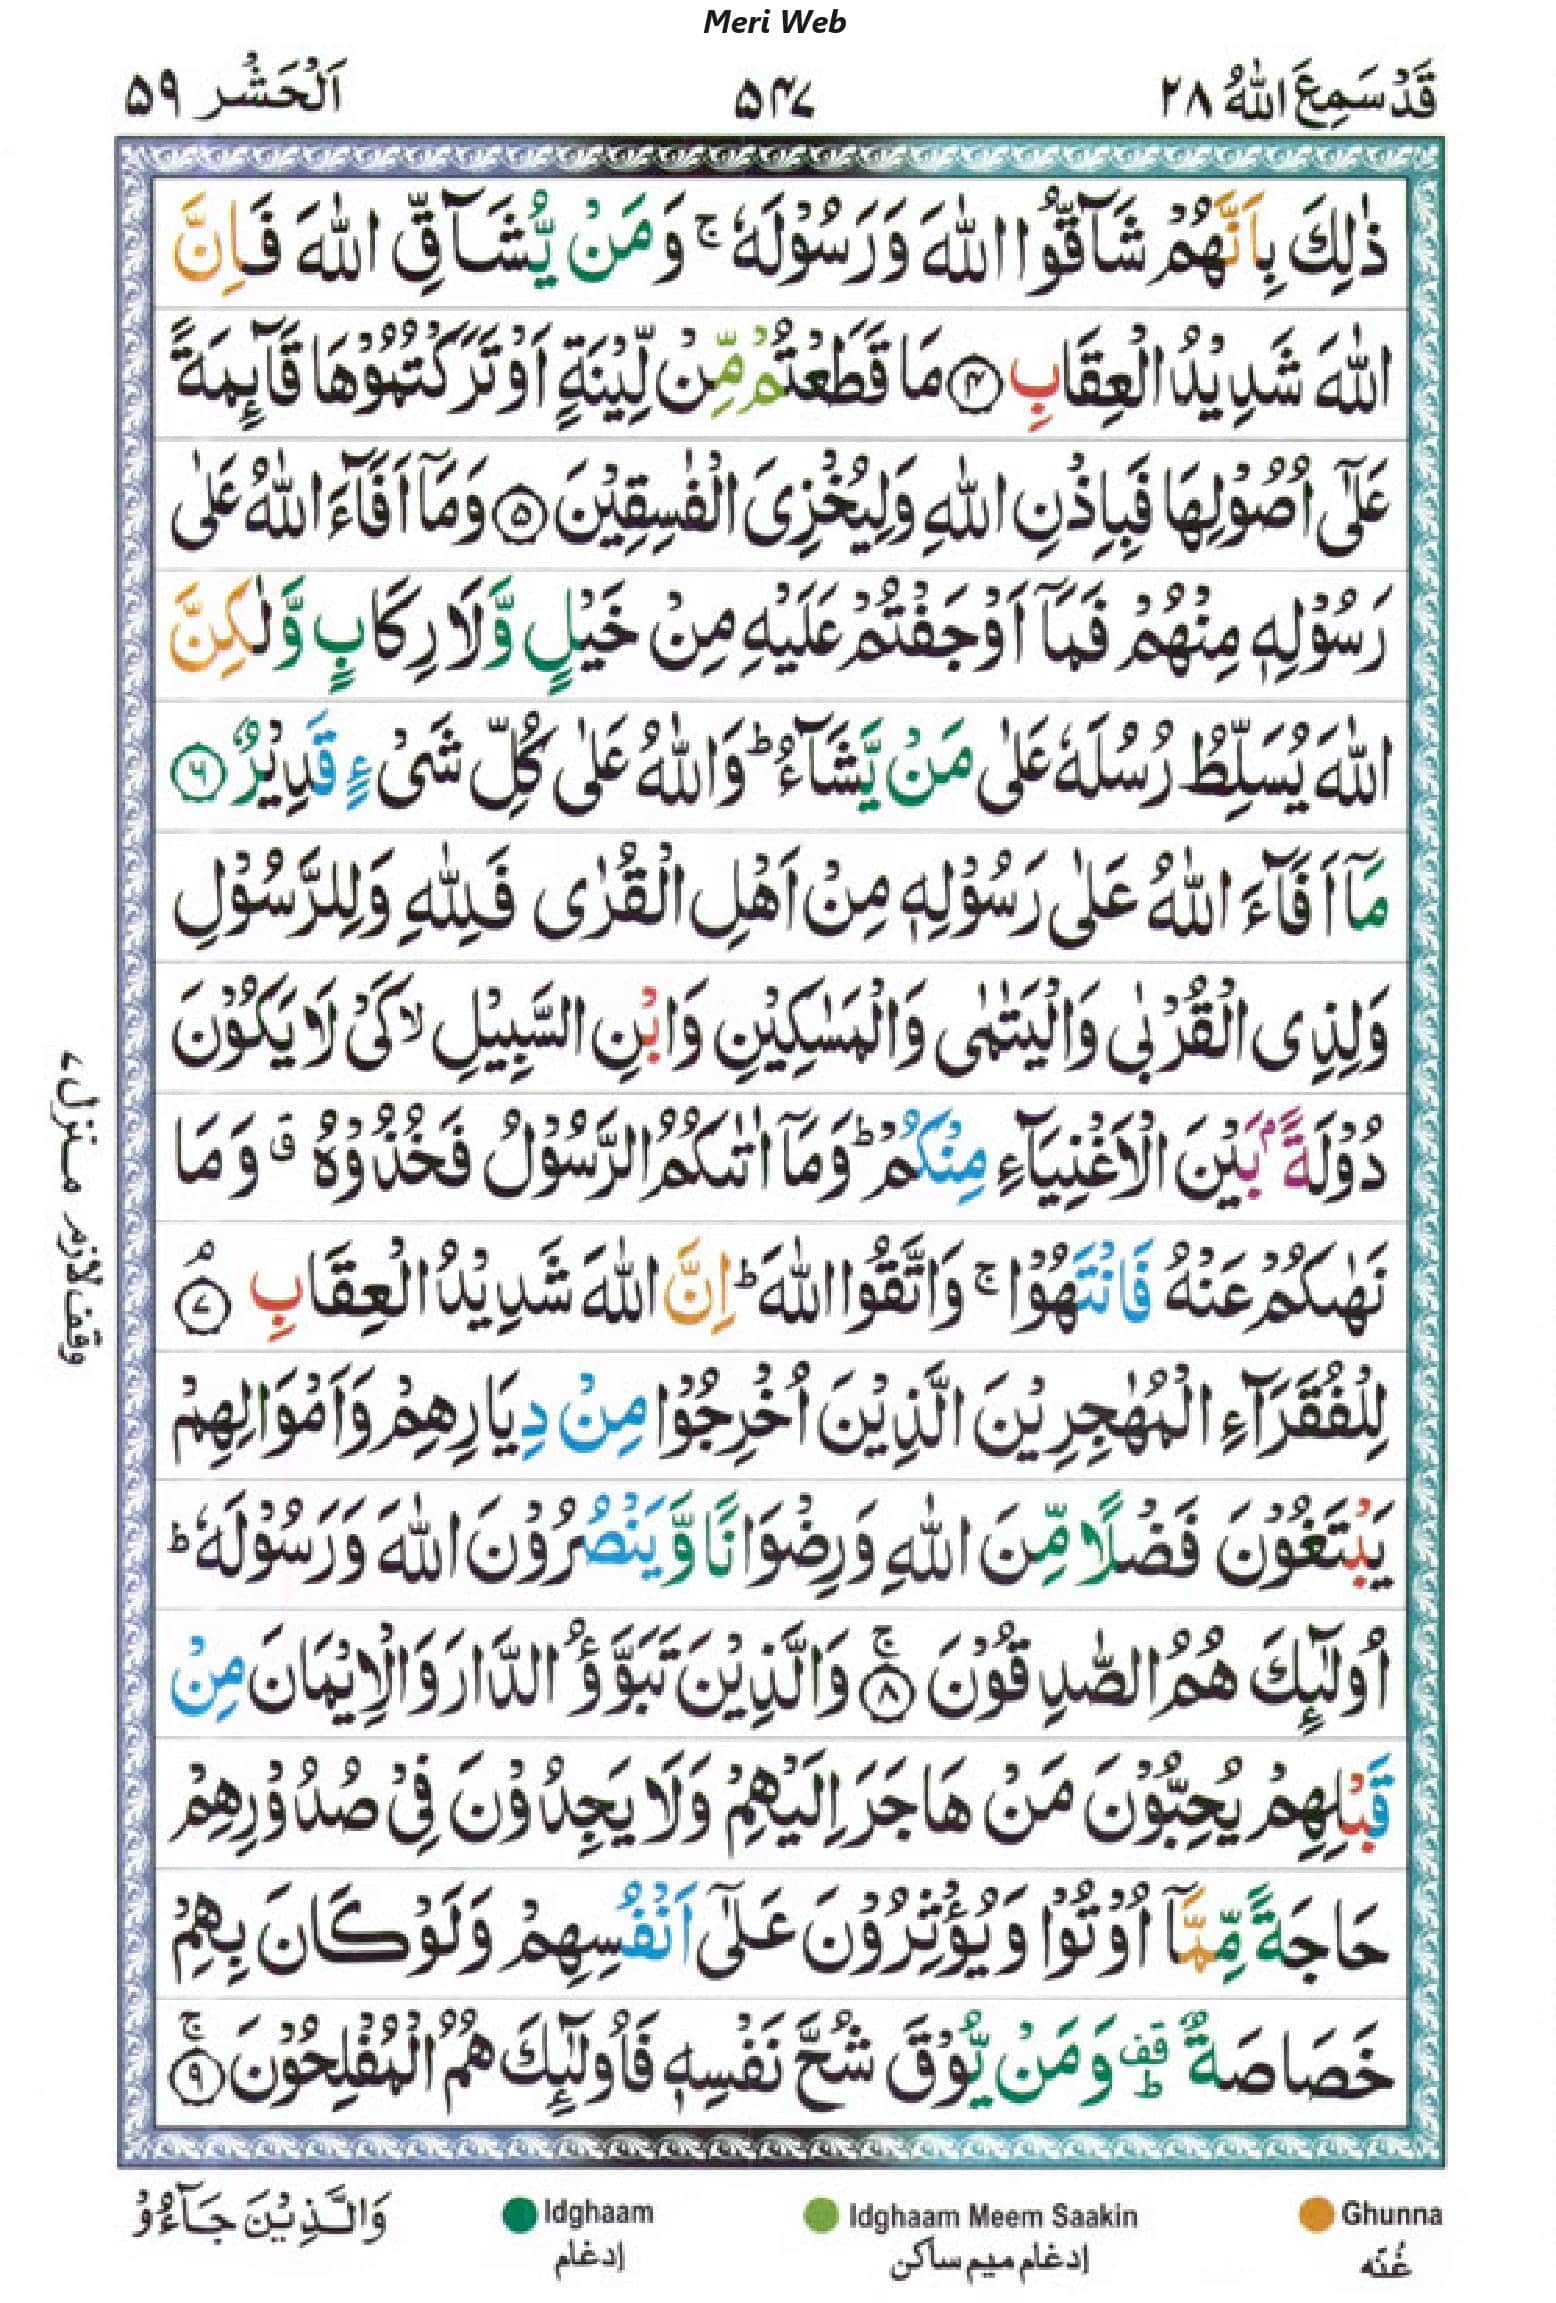 Meri Web
قَدْ سَمِعَ اللّٰهُ ٢٨
۵۴۷
اَلْحَشْر ۵۹
ذٰلِكَ بِاَنَّهُمْ شَآقُّوا اللّٰهَ وَرَسُوْلَهٗ ۚ وَمَنْ يُّشَآقِّ اللّٰهَ فَاِنَّ
اللّٰهَ شَدِيْدُ الْعِقَابِ ۴ مَا قَطَعْتُمْ مِّنْ لِّيْنَةٍ اَوْ تَرَكْتُمُوْهَا قَآئِمَةً
عَلٰٓى اُصُوْلِهَا فَبِاِذْنِ اللّٰهِ وَلِيُخْزِىَ الْفٰسِقِيْنَ ۵ وَمَآ اَفَآءَ اللّٰهُ عَلٰى
رَسُوْلِهٖ مِنْهُمْ فَمَآ اَوْجَفْتُمْ عَلَيْهِ مِنْ خَيْلٍ وَّلَا رِكَابٍ وَّلٰكِنَّ
اللّٰهَ يُسَلِّطُ رُسُلَهٗ عَلٰى مَنْ يَّشَآءُ ؕ وَاللّٰهُ عَلٰى كُلِّ شَىْءٍ قَدِيْرٌ ۶
مَآ اَفَآءَ اللّٰهُ عَلٰى رَسُوْلِهٖ مِنْ اَهْلِ الْقُرٰى فَلِلّٰهِ وَلِلرَّسُوْلِ
وَلِذِى الْقُرْبٰى وَالْيَتٰمٰى وَالْمَسٰكِيْنِ وَابْنِ السَّبِيْلِ ۙ كَىْ لَا يَكُوْنَ
دُوْلَةًۢ بَيْنَ الْاَغْنِيَآءِ مِنْكُمْ ؕ وَمَآ اٰتٰىكُمُ الرَّسُوْلُ فَخُذُوْهُ ۗ وَمَا
نَهٰىكُمْ عَنْهُ فَانْتَهُوْا ۚ وَاتَّقُوا اللّٰهَ ؕ اِنَّ اللّٰهَ شَدِيْدُ الْعِقَابِ ۘ ۷
لِلْفُقَرَآءِ الْمُهٰجِرِيْنَ الَّذِيْنَ اُخْرِجُوْا مِنْ دِيَارِهِمْ وَاَمْوَالِهِمْ
يَبْتَغُوْنَ فَضْلًا مِّنَ اللّٰهِ وَرِضْوَانًا وَّيَنْصُرُوْنَ اللّٰهَ وَرَسُوْلَهٗ ؕ
اُولٰٓئِكَ هُمُ الصّٰدِقُوْنَ ۚ ۸ وَالَّذِيْنَ تَبَوَّؤُ الدَّارَ وَالْاِيْمَانَ مِنْ
قَبْلِهِمْ يُحِبُّوْنَ مَنْ هَاجَرَ اِلَيْهِمْ وَلَا يَجِدُوْنَ فِىْ صُدُوْرِهِمْ
حَاجَةً مِّمَّآ اُوْتُوْا وَيُؤْثِرُوْنَ عَلٰٓى اَنْفُسِهِمْ وَلَوْ كَانَ بِهِمْ
خَصَاصَةٌ ؕ قف وَمَنْ يُّوْقَ شُحَّ نَفْسِهٖ فَاُولٰٓئِكَ هُمُ الْمُفْلِحُوْنَ ۚ ۹
وقف لازم منزل ۷
وَالَّذِيْنَ جَآءُوْ
Idghaam
إدغام
Idghaam Meem Saakin
إدغام ميم ساكن
Ghunna
غُنّه